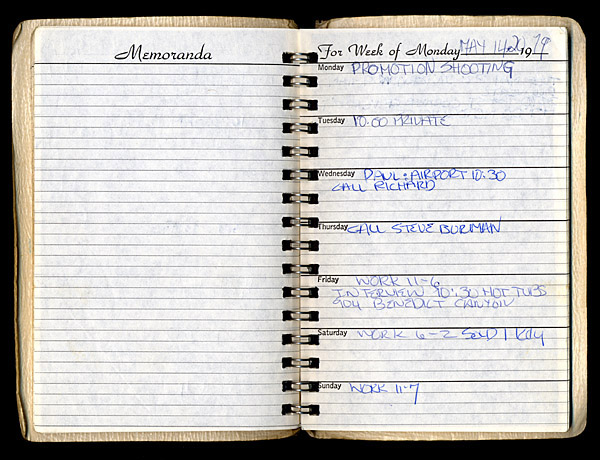 Memoranda
For Week of Monday MAY 14-20 1979
Monday PROMOTION SHOOTING
Tuesday 10:00 PRIVATE
Wednesday PAUL: AIRPORT 10:30
CALL RICHARD
Thursday CALL STEVE
Friday WORK 11-6
INTERVIEW 10:30 HOT TUBS
904 BENEDICT CANYON
Saturday WORK 6-2 Send 1
Sunday WORK 11-7